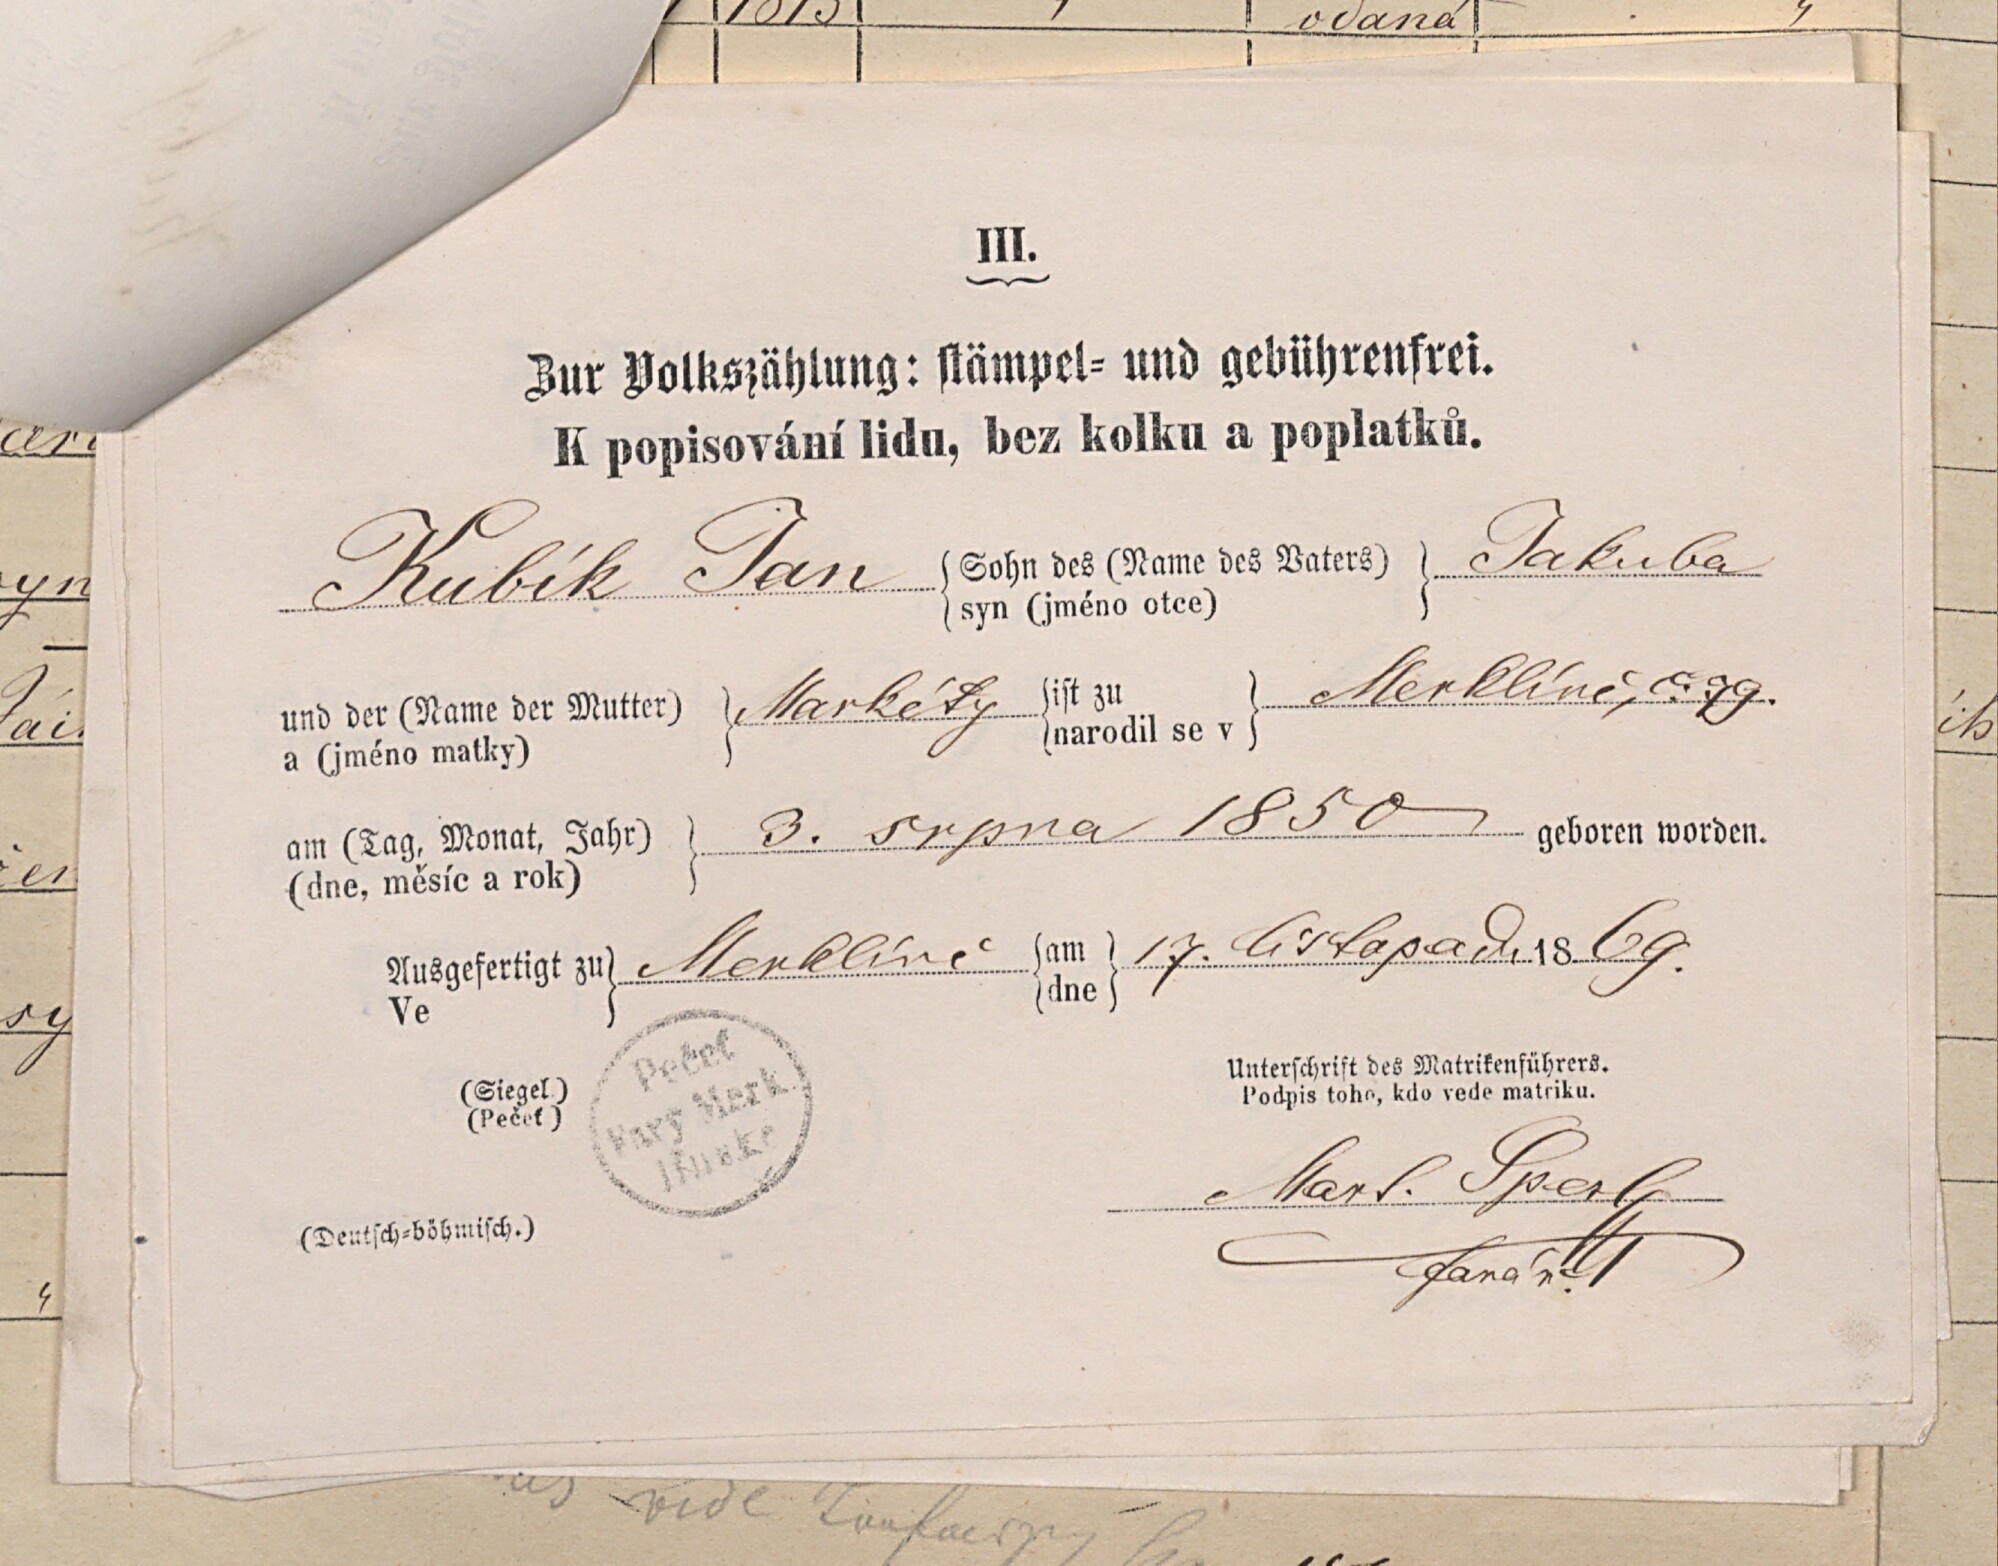 1815
odaná
III.
Zur Volkszählung: stämpel- und gebührenfrei.
K popisování lidu, bez kolku a poplatků.
Kubík Jan {Sohn des (Name des Vaters)} Jakuba
{syn (jméno otce)}
und der (Name der Mutter)} Markéty {ist zu} Merklíně, č. 79.
a (jméno matky)} {narodil se v}
am (Tag, Monat, Jahr)} 3. srpna 1850 geboren worden.
(dne, měsíc a rok)
Ausgefertigt zu} Merklíně {am} 17. listopadu 1869.
Ve {dne}
(Siegel.)
(Pečeť)
Pečeť
Fary Merk
línské
Unterschrift des Matrikenführers.
Podpis toho, kdo vede matriku.
Mart. Sperl
farář.
(Deutsch-böhmisch.)
vide